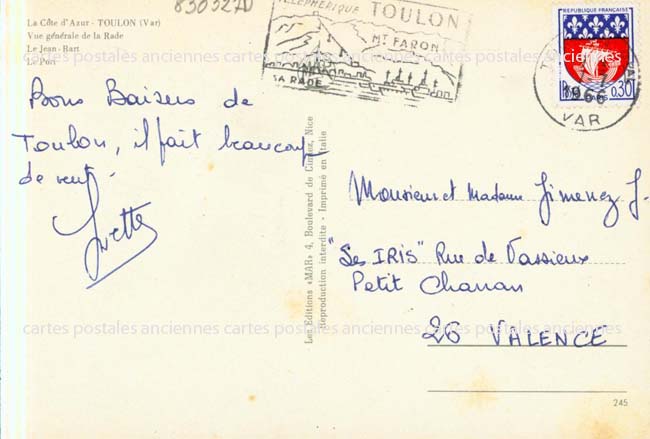 830327D
La Côte d'Azur - TOULON (Var)
Vue générale de la Rade
Le Jean-Bart
Le Port
TÉLÉPHÉRIQUE TOULON
MT FARON
SA RADE
REPUBLIQUE FRANÇAISE
0.30
1966
VAR
Bons Baisers de
Toulon, il fait beaucoup
de vent.
Yvette
Les Editions «MAR» 4, Boulevard de Cimiez, Nice
Reproduction interdite - Imprimé en Italie
Monsieur et Madame Jimenez J.
"Les IRIS" Rue de Vassieux
Petit Charran
26 VALENCE
cartes postales anciennes cartes postales anciennes cartes postales anciennes
245